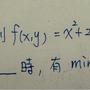 則 f(x,y) = x²+2
時, 有 min